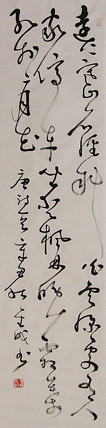 遠上寒山石徑斜白雲深處有人
家停車坐愛楓林晚霜葉
紅於二月花
唐詩